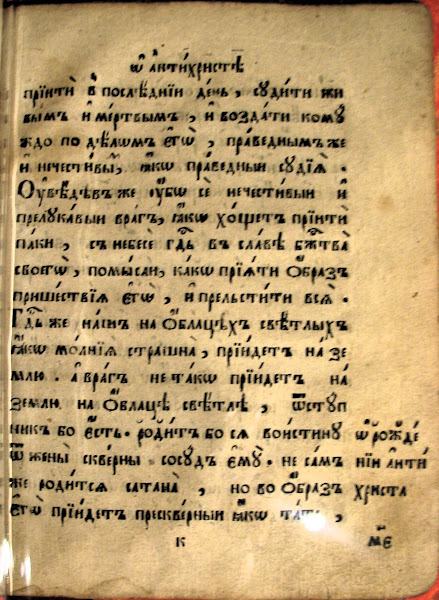 ѿ а҆нти́христѣ
прїитѝ в послѣ́днїи де́нь, суди́ти жи
вы́мъ и҆ ме́ртвымъ, и҆ возда́ти кому́
ждо по дѣ́ломъ є҆гѡ̀, пра́веднымъ же
и҆ нечести́вы́, ꙗ҆́кѡ пра́ведныи судїѧ̀.
Оу҆вѣ́дѣвъ же оу҆́бѡ сѐ нечести́выи и҆
прелука́выи вра́гъ, ꙗ҆́кѡ хо́щетъ прїитѝ
па́ки, съ небесѐ гдⷭ҇ь въ сла́вѣ бжⷭ҇тва̀
своегѡ̀, помы́сли, ка́кѡ прїѧ́ти ѻ҆́бразъ
прише́ствїѧ є҆гѡ̀, и҆ прельсти́ти всѧ̀.
Гдⷭ҇ь же на́шъ на ѻ҆́блацѣхъ свѣ́тлыхъ
ꙗ҆́кѡ мо́лнїѧ стра́шна, прїи́детъ на́ зе
млю. а҆ вра́гъ не та́кѡ прїи́детъ на́
землю на ѻ҆́блацѣ свѣ́тлѣ, ѿсту́п
никъ бо є҆́сть. роди́тъ бо сѧ вои́стину
ѿ жены̀ скве́рны сосу́дъ є҆му̀. не са́мъ
же роди́тсѧ сатана̀, но во ѻ҆́бразъ
є҆гѡ̀ прїи́детъ прескве́рныи ꙗ҆́кѡ та́ть,
ѡ҆ рожде́
нїи а҆нти́
христа
к
м҃е